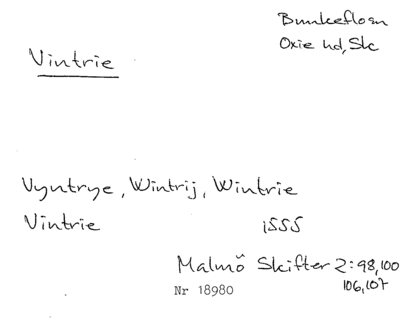 Bunkeflosn
Oxie hd, Skc
Vintrie
Vyntrye, Wintrij, Wintrie
Vintrie 1555
Malmö Skifter 2:98,100
106,107
Nr 18980